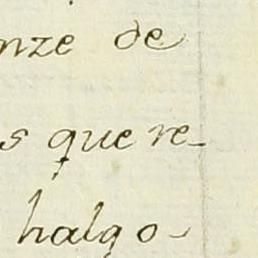 nze de
s que re-
halgo-